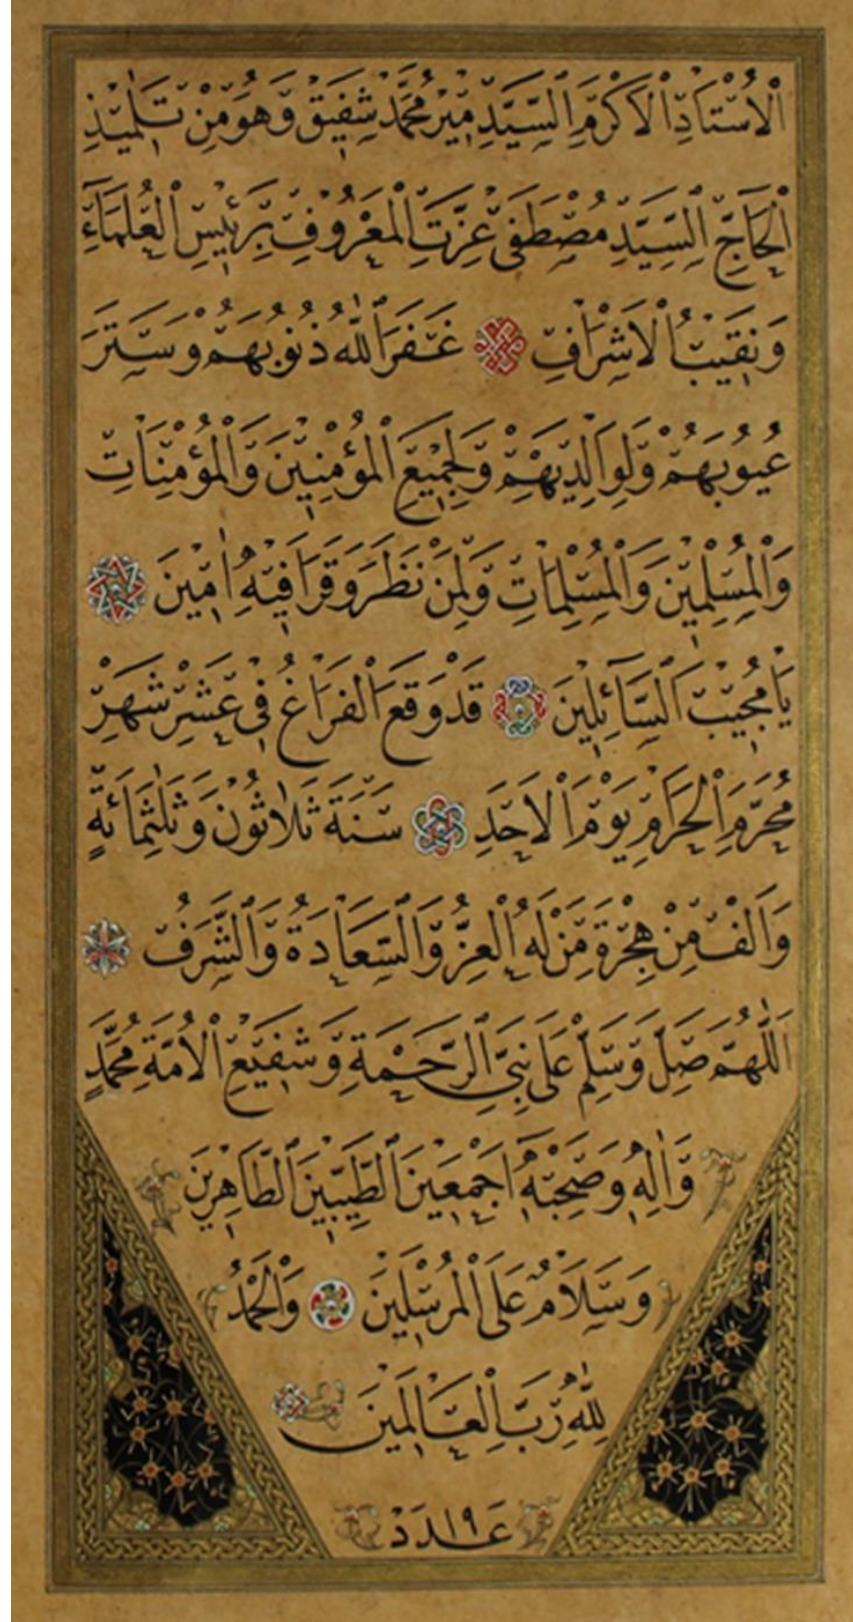 اَلْاُسْتَاذِ الْاَكْرَمِ السَّيِّدِ مِيْر مُحَمَّد شَفِيَقْ وَهُوَ مِنْ تَلٰمِيْذِ
الْحَاجِّ السَّيِّدِ مُصْطَفٰى عِزَّتِ الْمَعْرُوفِ بِرَئِيسِ الْعُلَمَاءِ
وَنَقِيْبُ الْاَشْرَافِ غَفَرَ اللّٰهُ ذُنُوبَهُمْ وَسَتَرَ
عُيُوبَهُمْ وَلِوَالِدِيْهِمْ وَلِجَمِيْعِ الْمُؤْمِنِيْنَ وَالْمُؤْمِنَاتِ
وَالْمُسْلِمِيْنَ وَالْمُسْلِمَاتِ وَلِمَنْ نَظَرَ وَقَرَاَ فِيْهِ اٰمِيْنَ
يَا مُجِيْبَ السَّآئِلِيْنَ قَدْ وَقَعَ الْفَرَاغُ فِي عَشْرِ شَهْرِ
مُحَرَّمِ الْحَرَامِ يَوْمَ الْاَحَدِ سَنَةَ ثَلَاثُونْ وَثَلٰثِمَائَةٍ
وَاَلْفْ مِنْ هِجْرَةِ مَنْ لَهُ الْعِزُّ وَالسَّعَادَةُ وَالشَّرَفُ
اَللّٰهُمَّ صَلِّ وَسَلِّمْ عَلٰى نَبِيِّ الرَّحْمَةِ وَشَفِيْعِ الْاُمَّةِ مُحَمَّدٍ
وَاٰلِهِ وَصَحْبِهِ اَجْمَعِينَ الطَّيِّبِينَ الطَّاهِرِينَ
وَسَلَامٌ عَلَى الْمُرْسَلِينَ وَالْحَمْدُ
لِلّٰهِ رَبِّ الْعَالَمِينَ
عَدَدْ ١٩